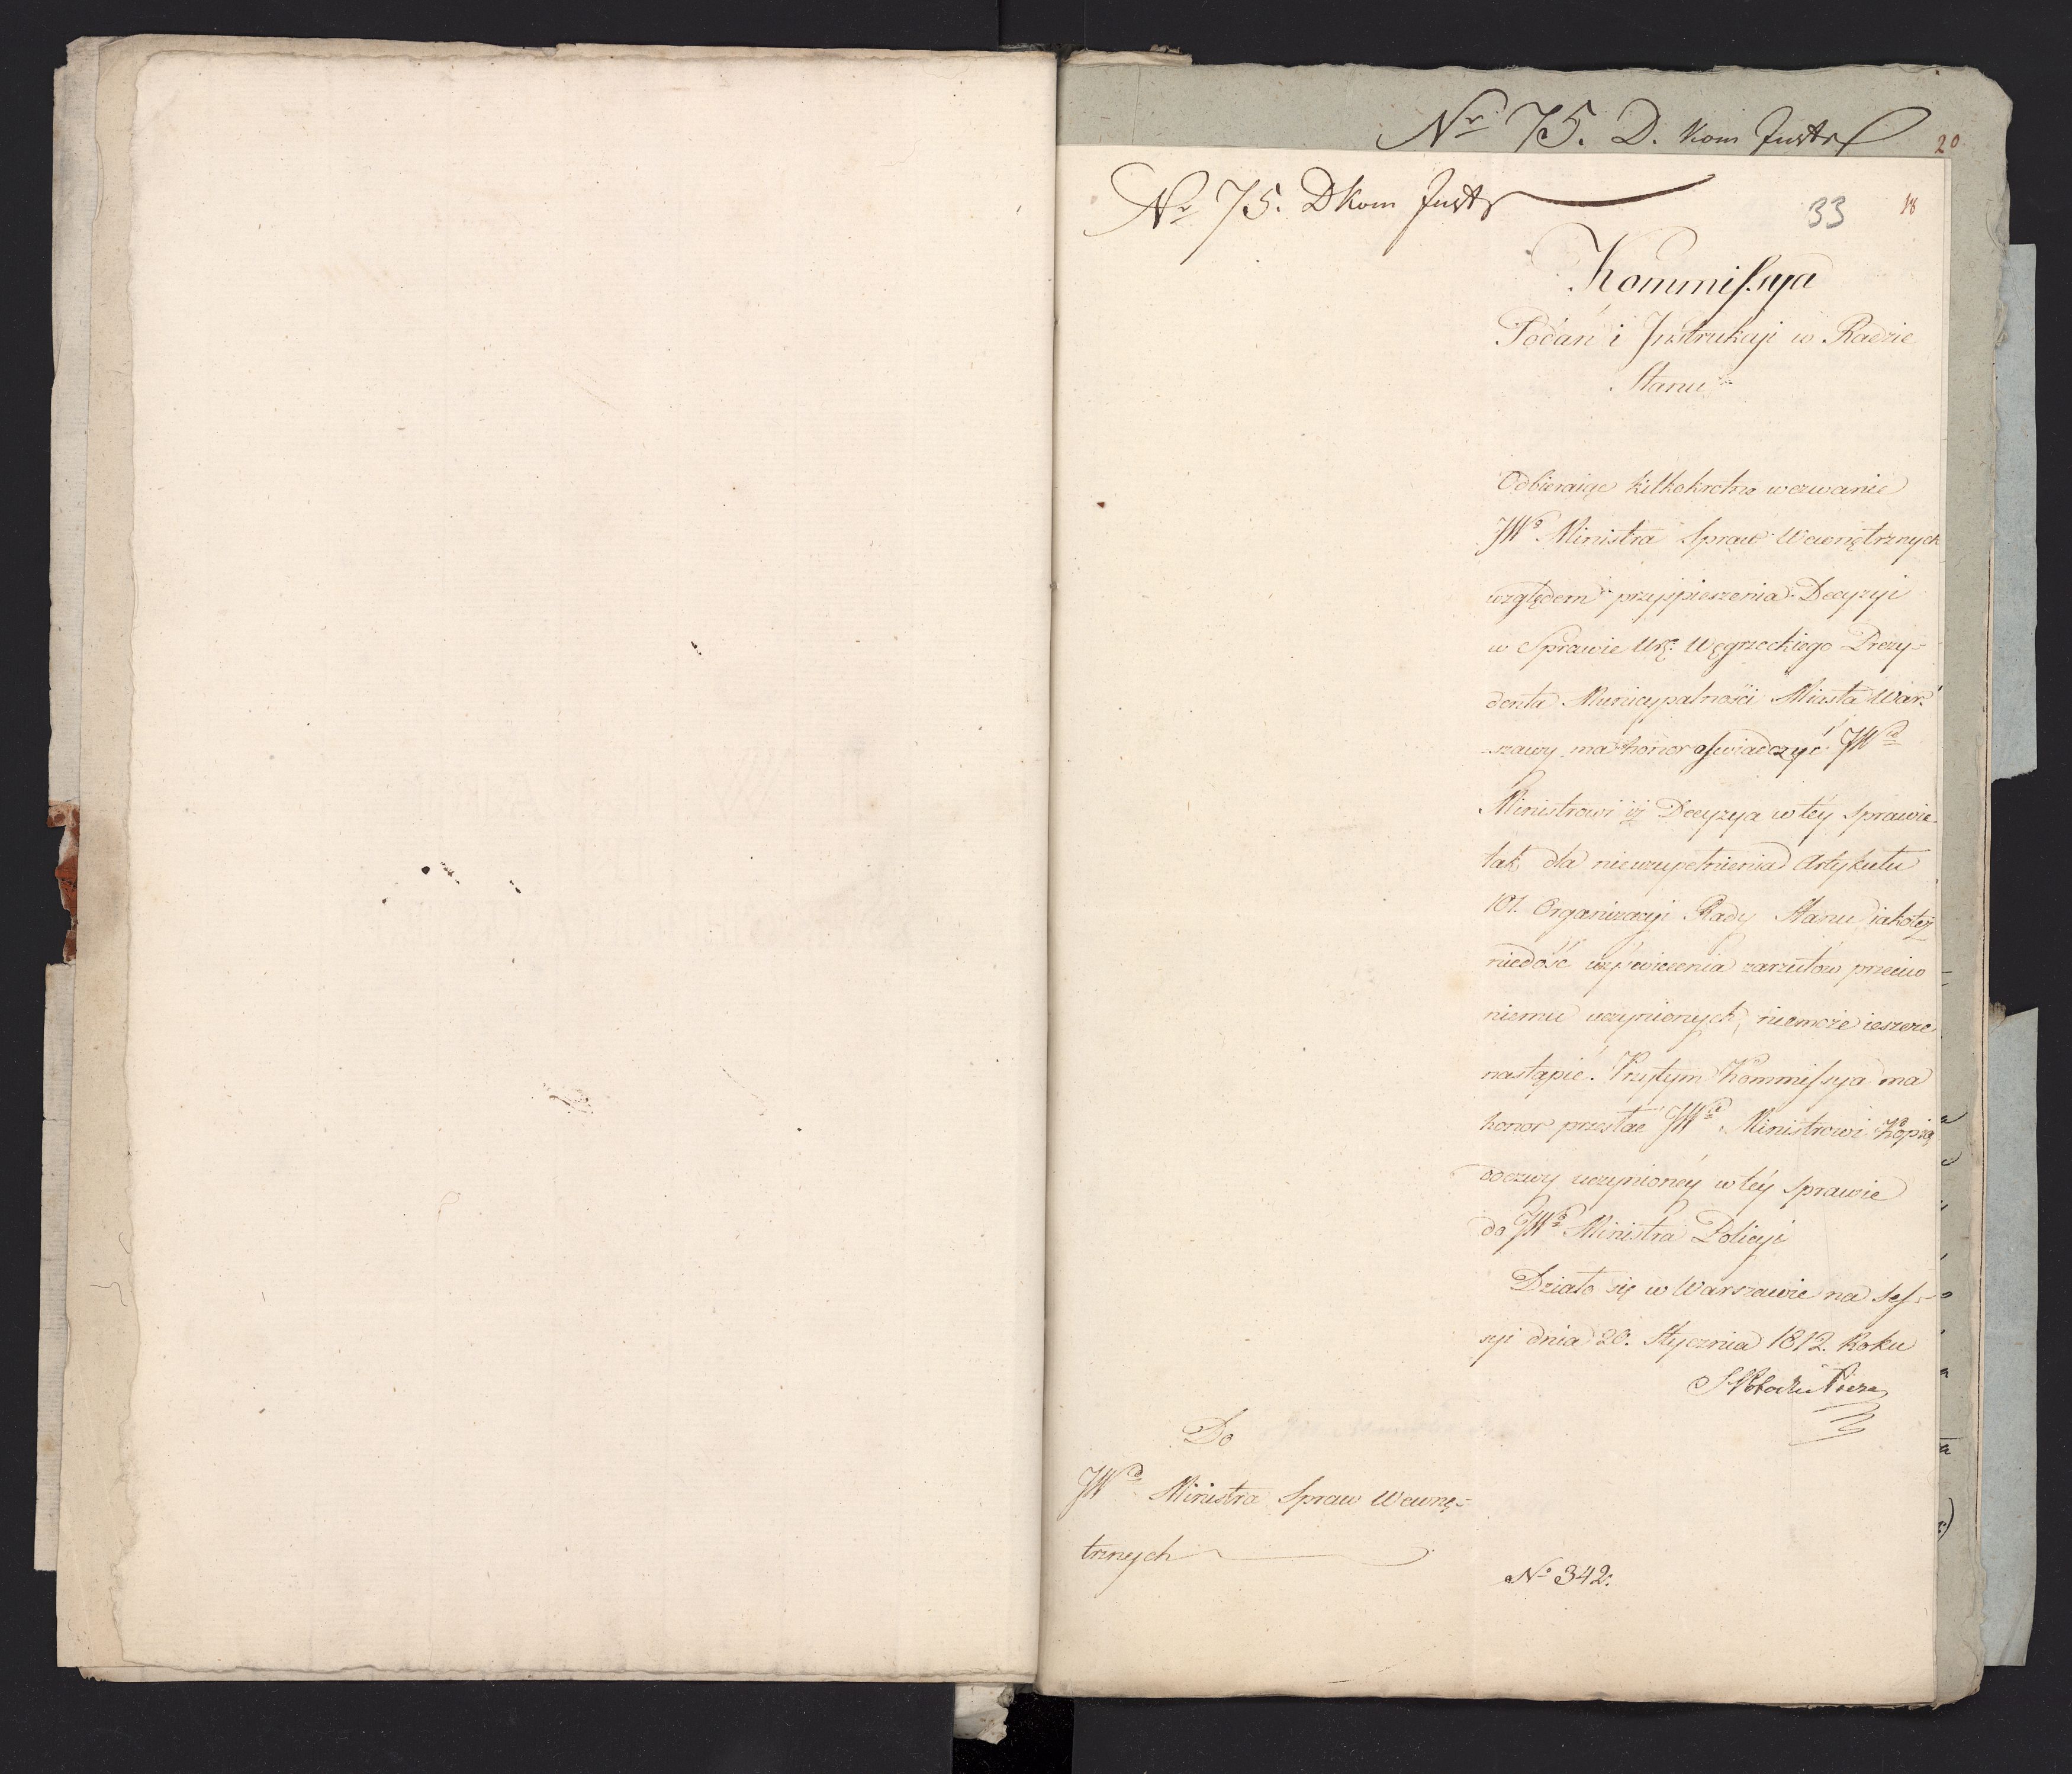 Nr 75. D. Kom Instr
20
Nr 75. D Kom Instr
33
18
Kommissya
Podań i Instrukcyi w Radzie
Stanu
Odbieraiąc kilkokrotne wezwanie
JWo Ministra Spraw Wewnętrznych
względem przyspieszenia Decyzyi
w Sprawie Ur: Węgrzeckiego Prezy-
denta Municypalności Miasta War-
szawy ma honor oświadczyć JWu
Ministrowi iż Decyzya w tey Sprawie
tak dla nieuzupełnienia Artykułu
101. Organizacyi Rady Stanu iakoteż
niedość wyświecenia zarzutów przeciw
niemu uczynionych, niemoże ieszcze
nastąpić. Przytym Kommissya ma
honor przesłać JWu Ministrowi Kopią
odezwy uczynioney w tey Sprawie
do JWo Ministra Policyi
Działo się w Warszawie na Ses-
syi dnia 20. Stycznia 1812. Roku
S Potocki Preze
Do
JWo Ministra Spraw Wewnę-
trznych
No 342.